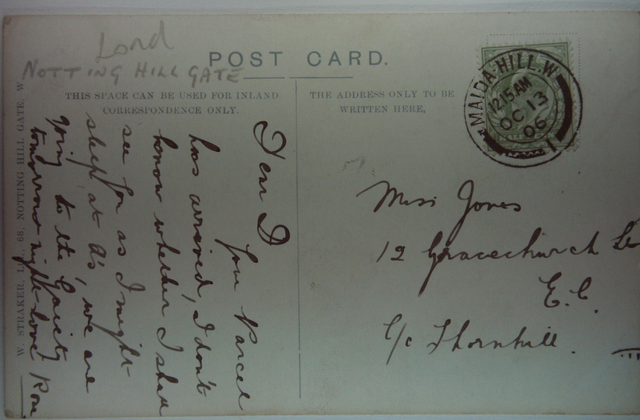 Lord
NOTTING HILL GATE
POST CARD.
THIS SPACE CAN BE USED FOR INLAND
CORRESPONDENCE ONLY.
THE ADDRESS ONLY TO BE
WRITTEN HERE,
MAIDA·HILL.W
12.15 AM
OC 13
06
1
Miss Jones
12 Gracechurch
E.C.
c/o Thornhill.
D
your Parcel
has arrived, I don't
know whether I shall
see for as I might
sleep at A's, we are
going to the Gaiety
tomorrow night love
W. STRAKER, 66, NOTTING HILL GATE, W